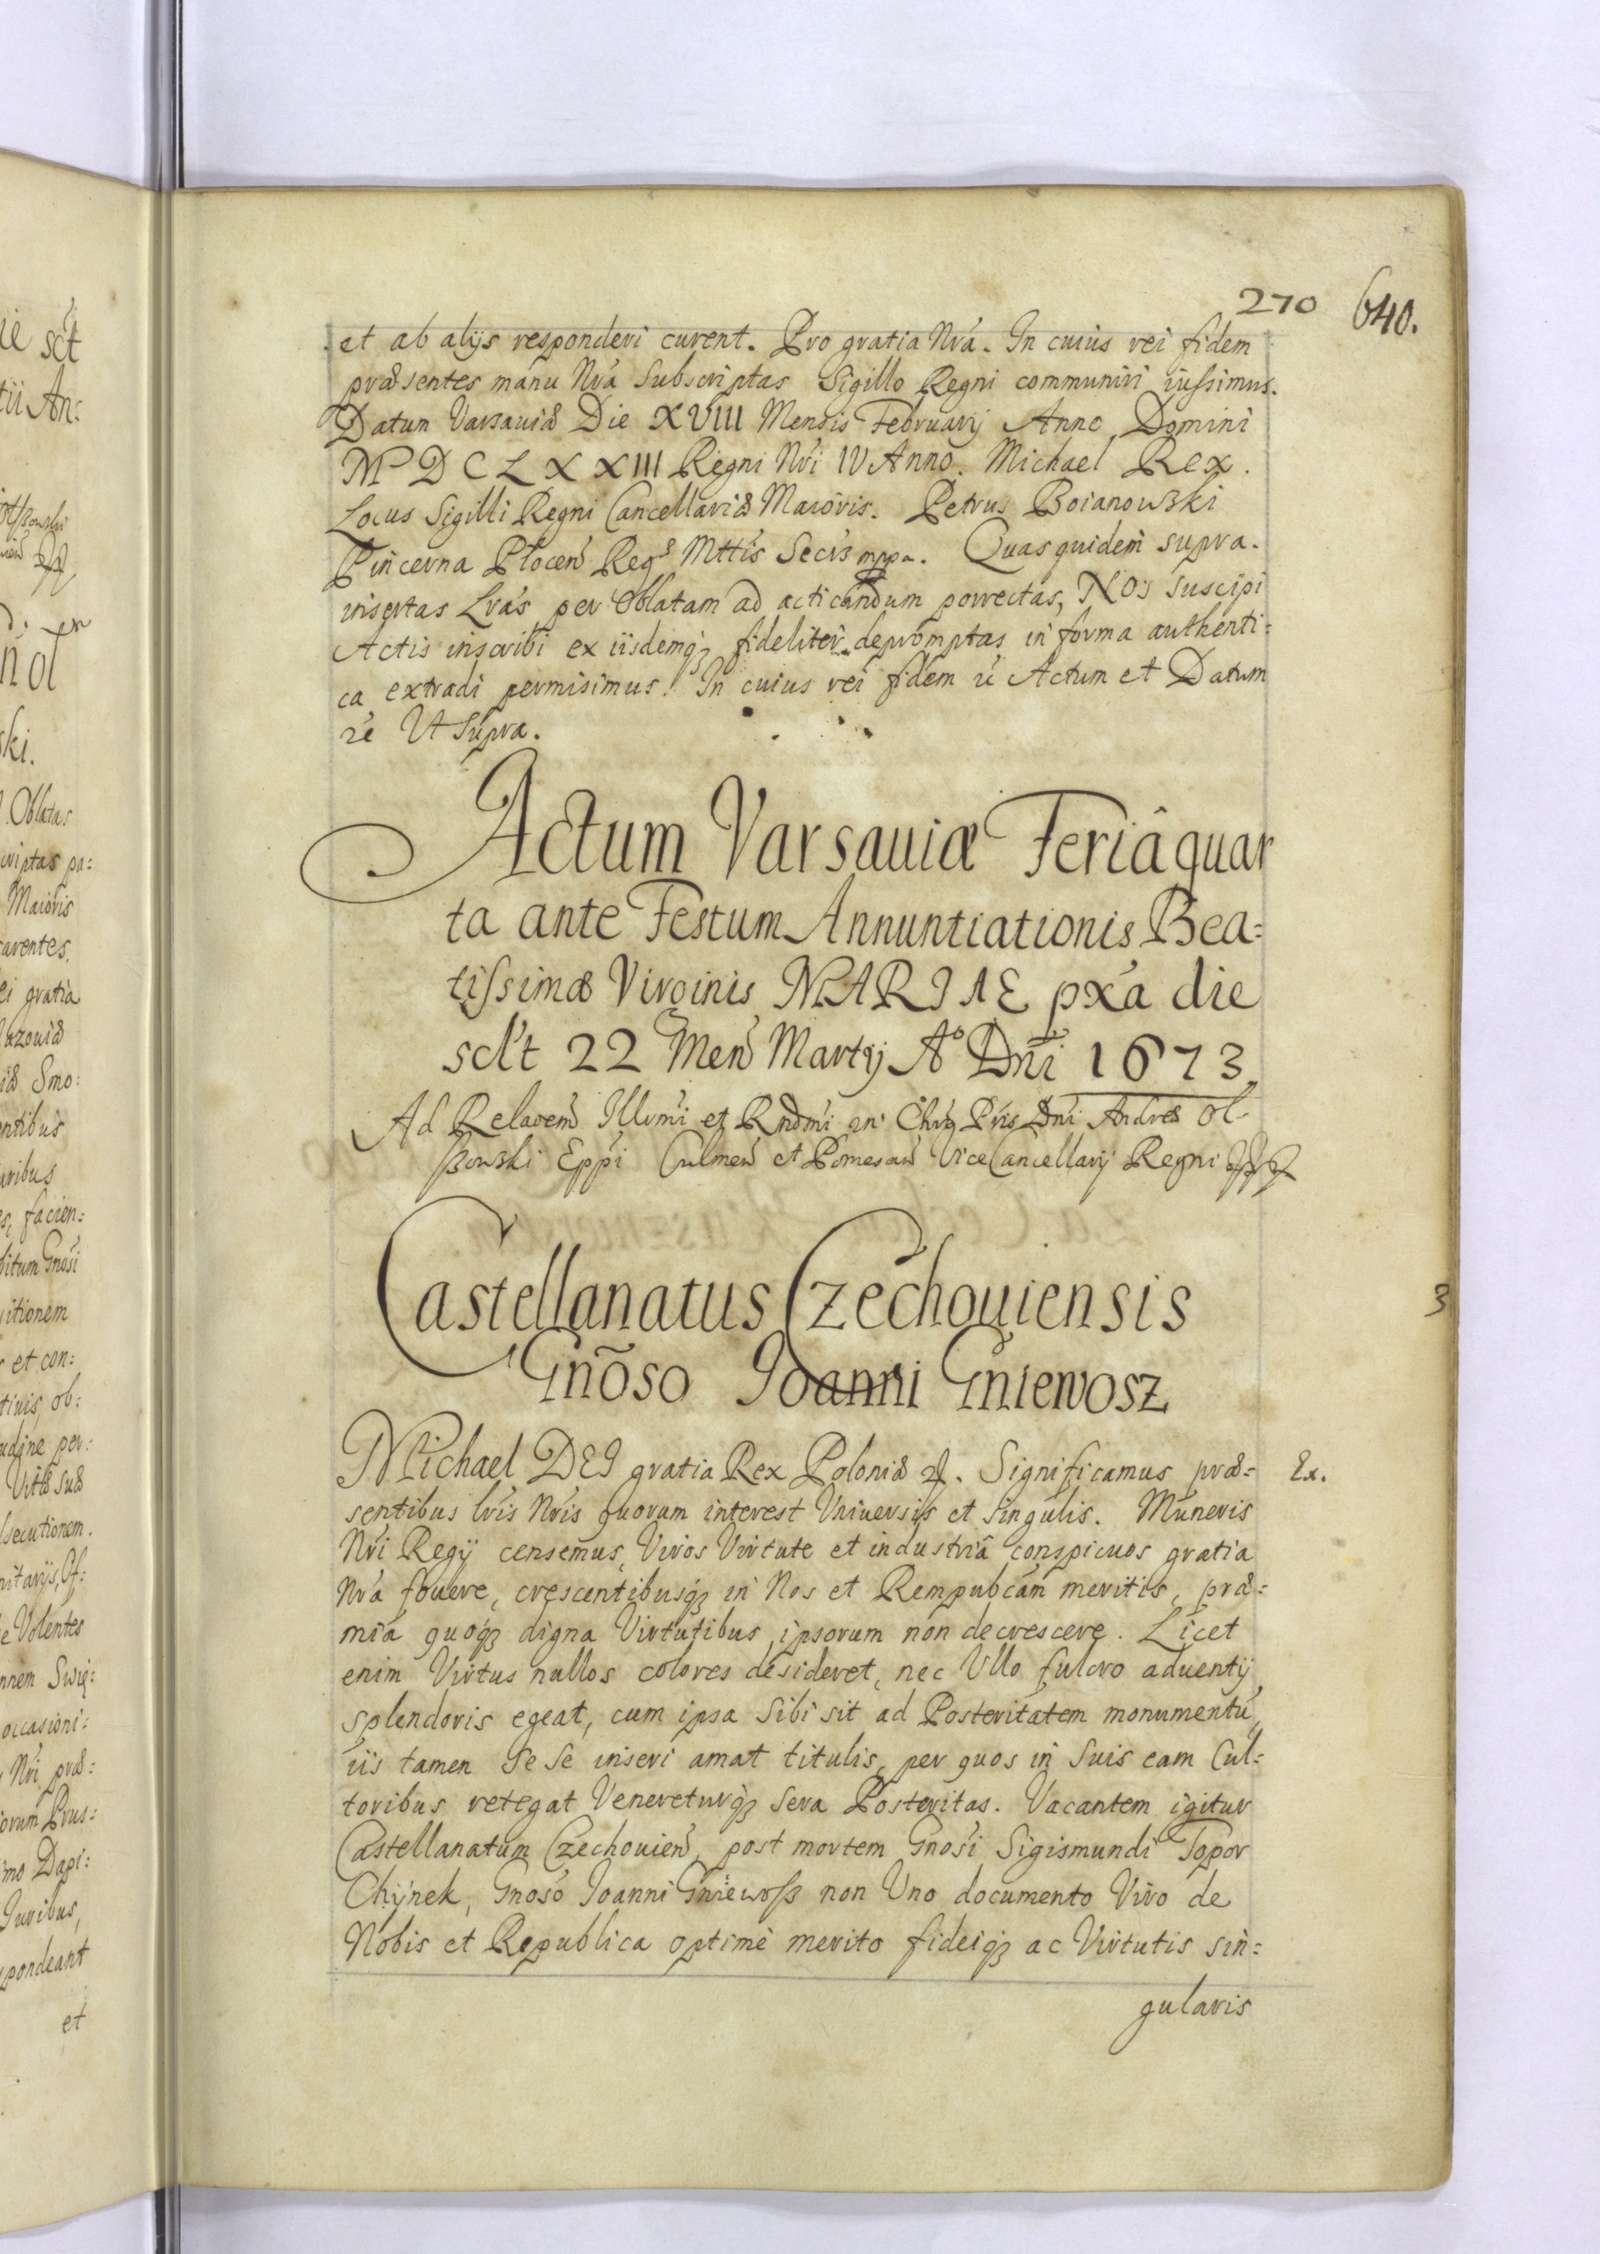 270 640.
et ab alijs responderi curent. Pro gratia Nrá. In cuius rei fidem
præsentes manu Nrá Subscriptas Sigillo Regni communiri iussimus.
Datum Varsauiæ Die XVIII Mensis February Anno Domini
M D C L X X III Regni Nri IV Anno. Michael Rex.
Locus Sigilli Regni Cancellariæ Maioris. Petrus Boianowski
Pincerna Plocen Regæ Mttis Secrs mppa. Quas quidem supra.
insertas Lrás per Oblatam ad acticandum porrectas, Nos suscipi
Actis inscribi ex iisdemq3 fideliter depromptas in forma authenti=
ca extradi permisimus. In cuius rei fidem Actum et Datum
Ut Supra.
Actum Varsauiæ Feriâ quar
ta ante Festum Annuntiationis Bea=
tissimæ Virginis MARIAE pxá die
sclt 22 Men Martij Aº Dni 1673
Ad Relaoem Illrmi et Rndmi in Chro Pris Dni Andreæ Ol
szowski Eppi Culmen et Pomesan ViceCancellarij Regni
Castellanatus Czechouiensis
3
Gnõso Ioanni Gniewosz
Michael DEI gratia Rex Poloniæ. Significamus præ= Ex.
sentibus lris Nris quorum interest Vniuersis et singulis. Muneris
Nri Regij censemus, Viros Virtute et industriâ conspicuos gratia
Nrá fouere, crescentibusq3 in Nos et Rempubcam meritis, præ=
mia quoq3 digna Virtutibus ipsorum non decrescere. Licet
enim Virtus nullos colores desideret, nec Vllo fulcro aduentij
splendoris egeat, cum ipsa Sibi sit ad Posteritatem monumentu,
iis tamen Se Se inseri amat titulis, per quos in Suis eam Cul=
toribus retegat Venereturq3 Sera Posteritas. Vacantem igitur
Castellanatum Czechouien, post mortem Gnosi Sigismundi Topor
Chynek, Gnoso Ioanni Gniewosz non Vno documento Viro de
Nobis et Republica optimè merito fideiq3 ac Virtutis sin=
gularis